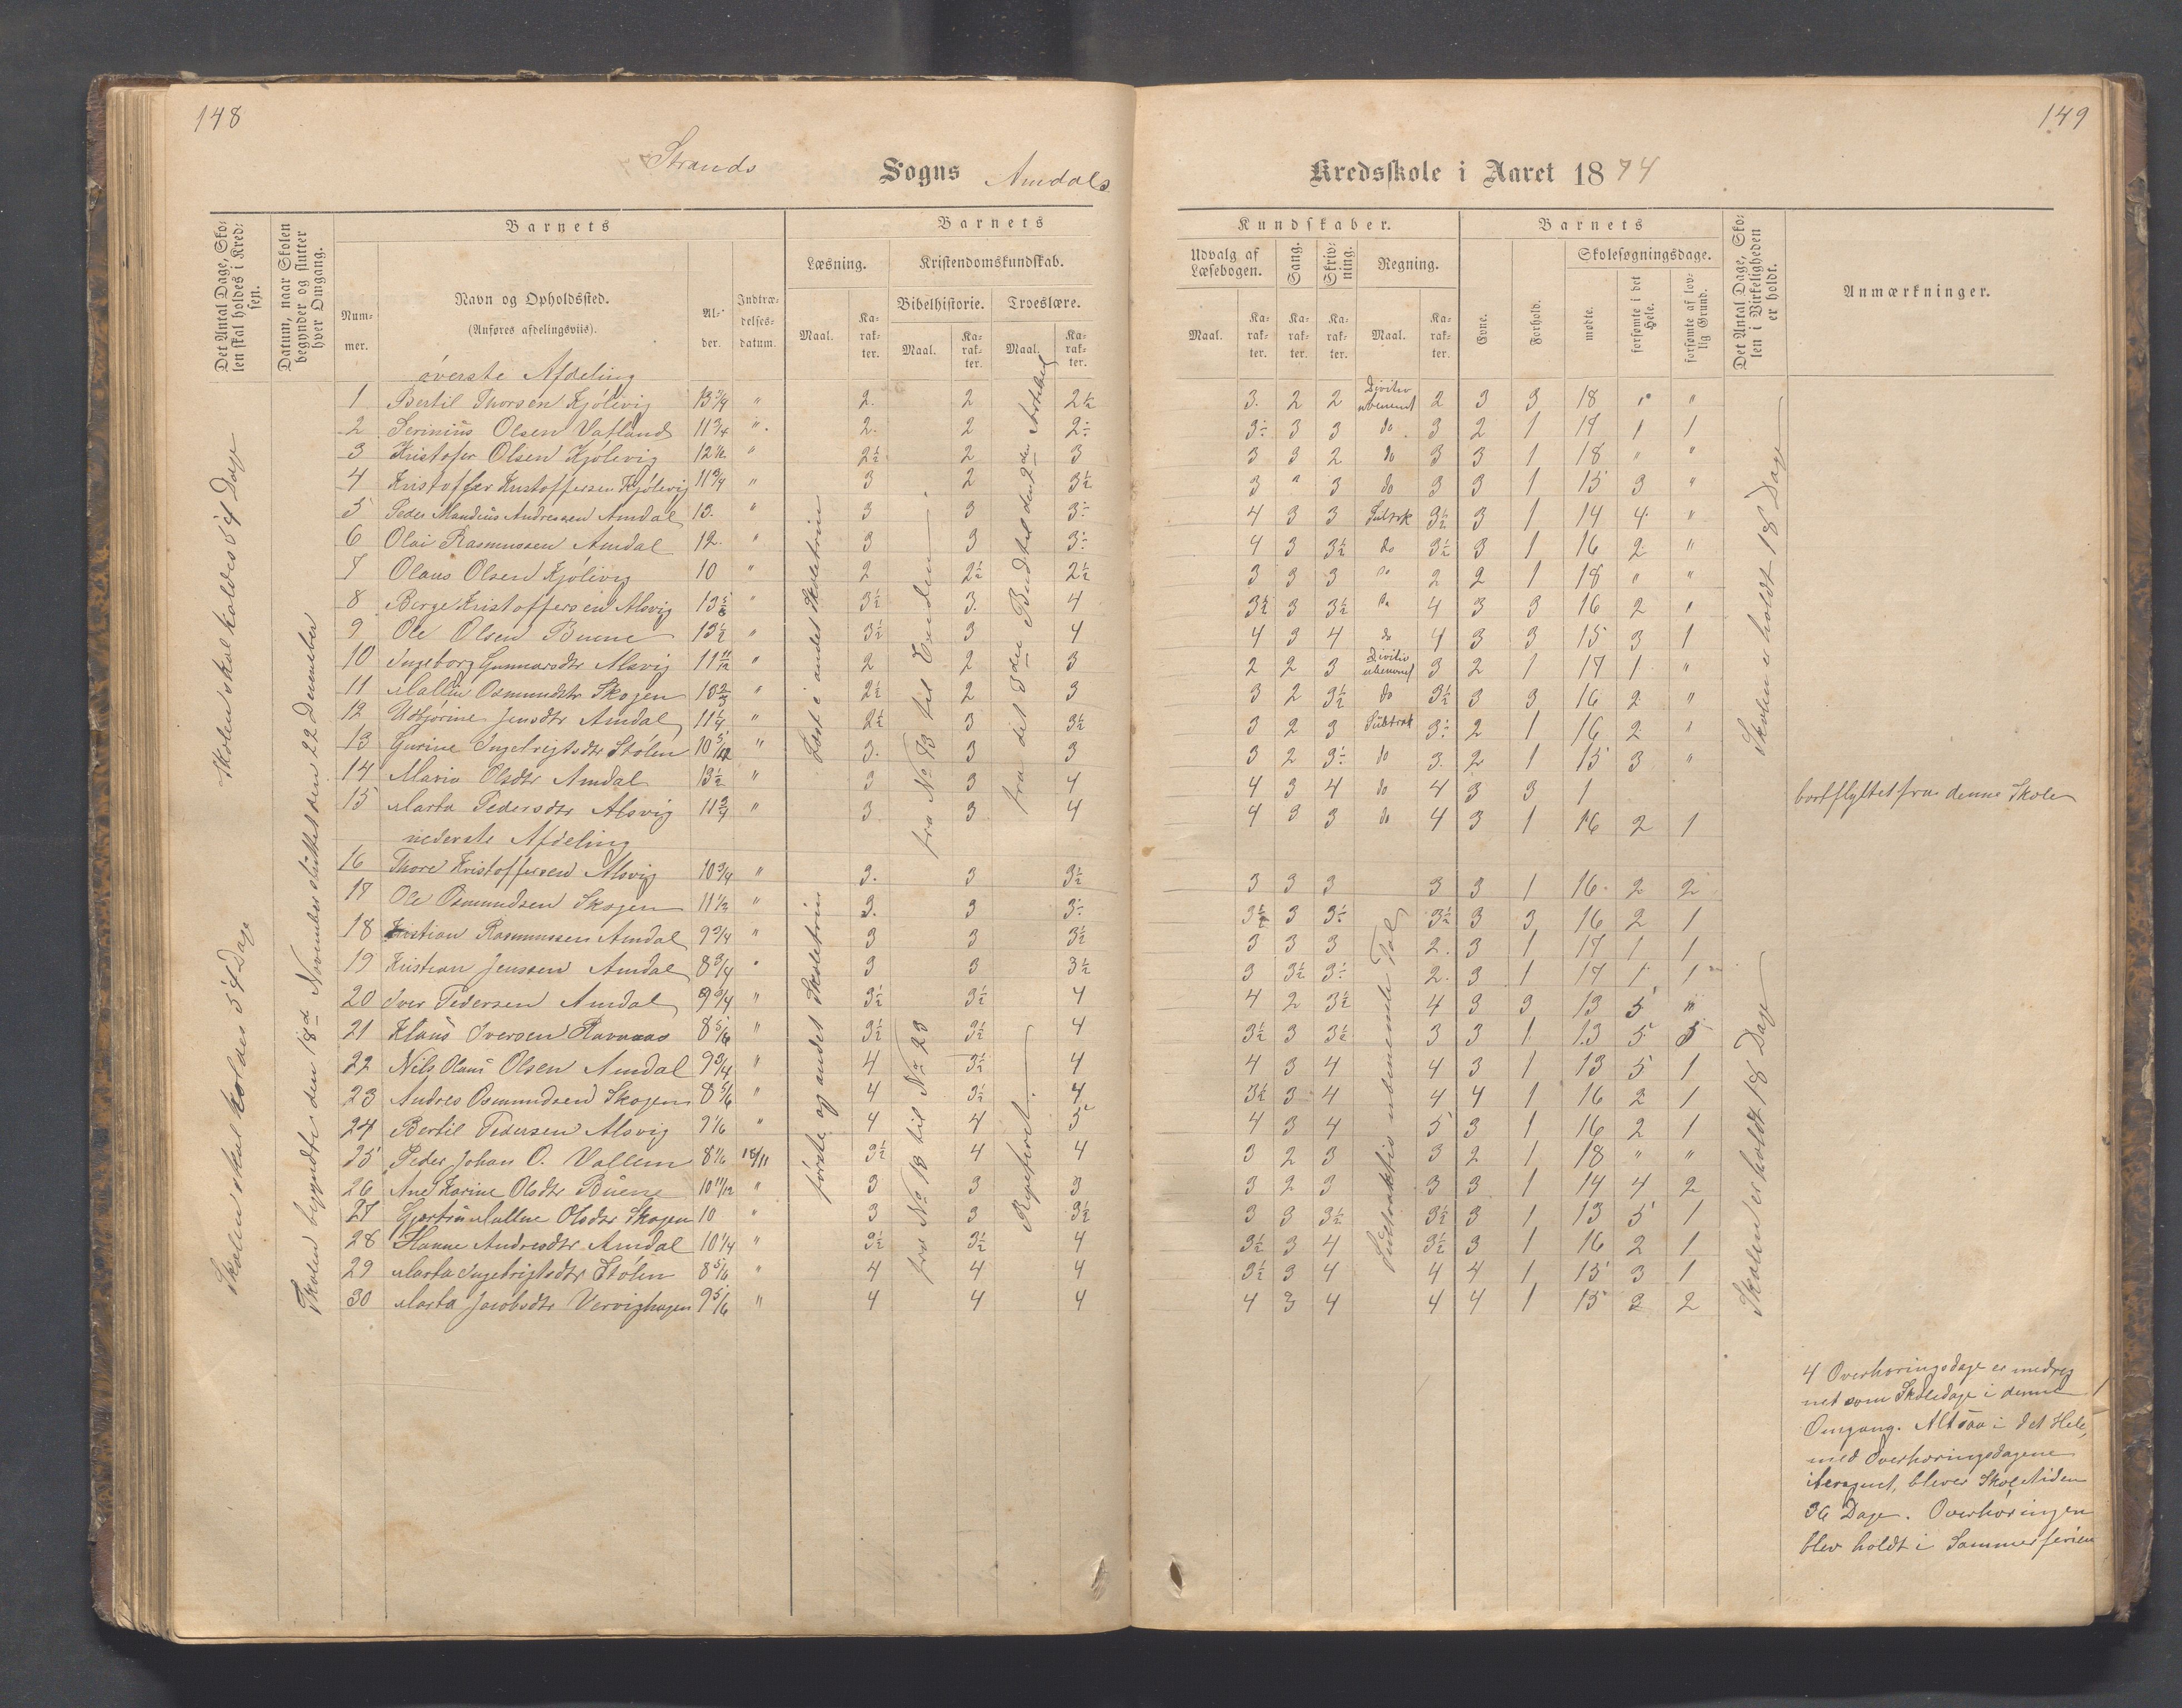 148
Strands Sogns Amdals
Det Antal Dage, Skolen skal holdes i Kredsen.
Datum, naar Skolen begynder og slutter hver Omgang.
Barnets
Barnets
Nummer.
Navn og Opholdssted.
(Anføres afdelingsviis).
Alder.
Indtrædelsesdatum.
Læsning.
Kristendomskundskab.
Bibelhistorie.
Troeslære.
Maal.
Karakter.
Maal.
Karakter.
Maal.
Karakter.
Skolen skal holdes 54 Dage
Skolen skal holdes 54 Dage
Skolen begyndte den 18d November sluttet den 22 Decmeber
øverste Afdeling
1 Bertil Thorsen Kjölevig 13 3/4 " 2. 2 2½
2 Serinius Olsen Vatland 11 3/4 " 2. 2 2÷
3 Kristofer Olsen Kjölevig 12½ " 2½ 2 3
4 Kristoffer Kristoffersen Kjölevig 11 3/4 " 3 2 3½
5 Peder Mandius Andreasen Amdal 13. " 3 3 3÷
6 Olai Rasmussen Amdal 12. " 3 3 3÷
7 Olaus Olsen Kjölevig 10 " 2 2½ 2½
8 Berge Kristoffersen Alsvig 13 5/6 " 3½ 3. 4
9 Ole Olsen Buene 13½ " 3½ 3 4
10 Ingeborg Gunnarsdtr Alsvig 11 11/12 " 2 2 3
11 Mallin Osmundsdtr Skogen 13 2/3 " 2½ 2 3
12 Udbjörine Jensdtr Amdal 11¼ " 2½ 3 3½
13 Gurine Ingebrigtsdtr Stölen 10 5/12 " 3. 3 3
14 Maria Olsdtr Amdal 13½ " 3 3 4
15 Marta Pedersdtr Alsvig 11 3/4 " 3 3 4
nederste Afdeling
16 Thore Kristoffersen Alsvig 10 3/4 " 3. 3 3½
17 Ole Osmundsen Skogen 11 1/3 " 3. 3 3÷
18 Kristian Rasmussen Amdal 9 3/4 " 3 3 3½
19 Kristian Jenssen Amdal 8 3/4 " 3 3 3½
20 Iver Pedersen Amdal 9 3/4 " 3½ 3½ 4
21 Klaus Iversen Ravnaas 8 5/6 " 3½ 3½ 4
22 Nils Olaus Olsen Amdal 9 3/4 " 4 3½ 4
23 Andres Osmundsen Skogen 8 5/6 " 4 3½ 4
24 Bertil Pedersen Alsvig 9 1/6 " 4 4 5
25 Peder Johan O. Vallem 8 1/6 18/11 3½ 4 4
26 Ane Karine Olsdtr Buene 10 11/12 " 3 3 3
27 Gjertru Malline Olsdtr Skogen 10 " 3 3 3½
28 Hanne Andresdtr Amdal 10 1/4 " 3½ 3½ 4
29 Marta Ingebrigtsdtr Stölen 8 5/6 " 4 4 4
30 Marta Jacobsdtr Vervighagen 9 5/6 " 4 4 4
Læst i andet Skoletrin
første og andet Skoletrin
fra No 73 til Enden
fra No 18 til No 23
fra det 3die Bud til den 2den Artikel
Repetiret
149
Kredsskole i Aaret 1874
Kundskaber.
Udvalg af Læsebogen.
Sang.
Skrivning.
Regning.
Maal.
Karakter.
Karakter.
Karakter.
Maal.
Karakter.
Barnets
Evne.
Forhold.
Skolesøgningsdage.
mødte.
forsømte i det Hele.
forsømte af lovlig Grund.
Det Antal Dage, Skolen i Virkeligheden er holdt.
Anmærkninger.
3. 2 2 Divitiv ubenevnt 2 3 3 18 " "
3÷ 3 3 do 3 2 1 17 1 1
3 3 2 do 3 3 1 18 " "
3 " 3 do 3 3 1 15 3 "
4 3 3 Subtrk 3½ 3 1 14 4 "
4 3 3½ do 3½ 3 1 16 2 "
3 3 3 do 2 2 1 18 " "
3½ 3 3½ do 4 3 3 16 2 "
4 3 4 do 4 3 3 15 3 1
2 2 3 Divitiv ubenevnt 3 2 1 17 1 "
3 2 3½ do 3½ 3 3 16 2 "
3 2 3 Subtrak 3÷ 2 1 16 2 "
3 2 3÷ do 3. 2 1 15 3 "
4 3 4 do 4 3 3 1 bortflyttet fra denne Skole
4 3 3 do 4 3 1 16 2 1
3 3 3 3 3 1 16 2 2
3½ 3 3÷ 3½ 3 3 16 2 1
3 3 3 2. 3 1 17 1 1
3 3½ 3÷ 2. 3 1 17 1 1
4 2 3½ 4 3 3 13 5 "
3½ 3 3½ 3 3 1 13 5 5
4 3 4 4 3 1 13 5 1
3½ 3 4 4 4 1 16 2 1
4 3 4 5 3 1 16 2 1
3 2 3 3 2 1 18 " "
3 2 3 3 3 1 14 4 2
3 3 3½ 3½ 3 1 13 5 1
3½ 3 4 3½ 3 1 16 2 1
3½ 3 4 4 4 1 15 3 1
4 3 4 4 4 1 15 3 2
Subtraktio ubenevnte Tal
Skolen er holdt 18 Dage
Skolen er holdt 18 Dage
4 Overhøringsdage er medreg
net som Skoledage i denne
Omgang. Altsaa i det Hele,
med Overhøringsdagene
iberegnet, blever Skoletiden
36 Dage. Overhøringen
blev holdt i Sommerferien